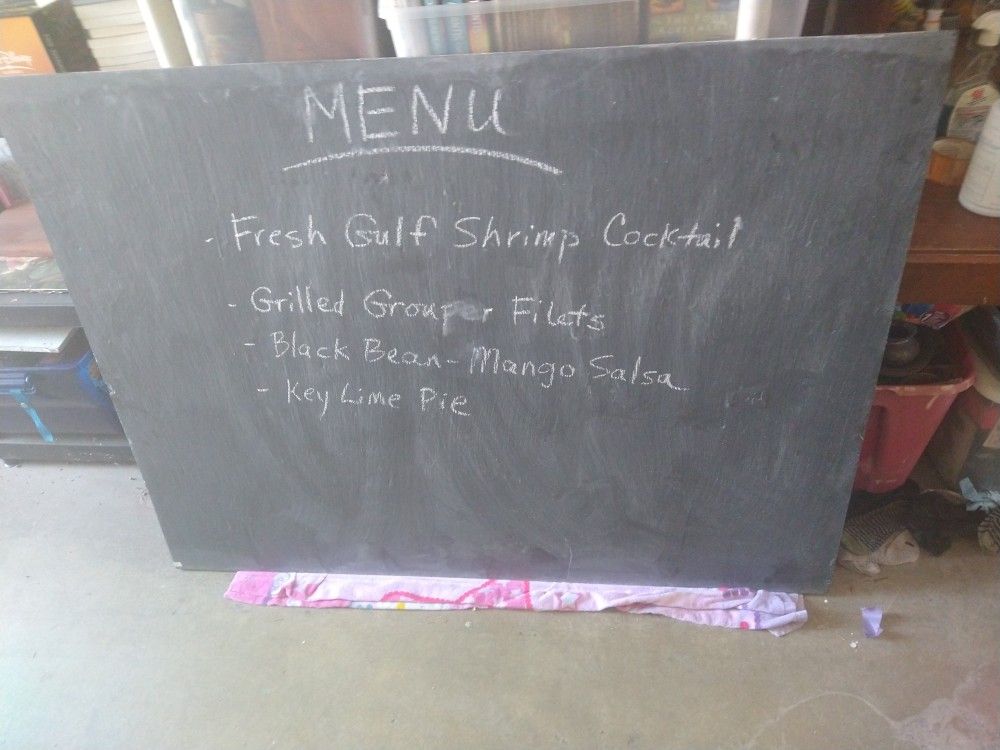 MENU
- Fresh Gulf Shrimp Cocktail
- Grilled Grouper Filets
- Black Bean-Mango Salsa
- Key Lime Pie